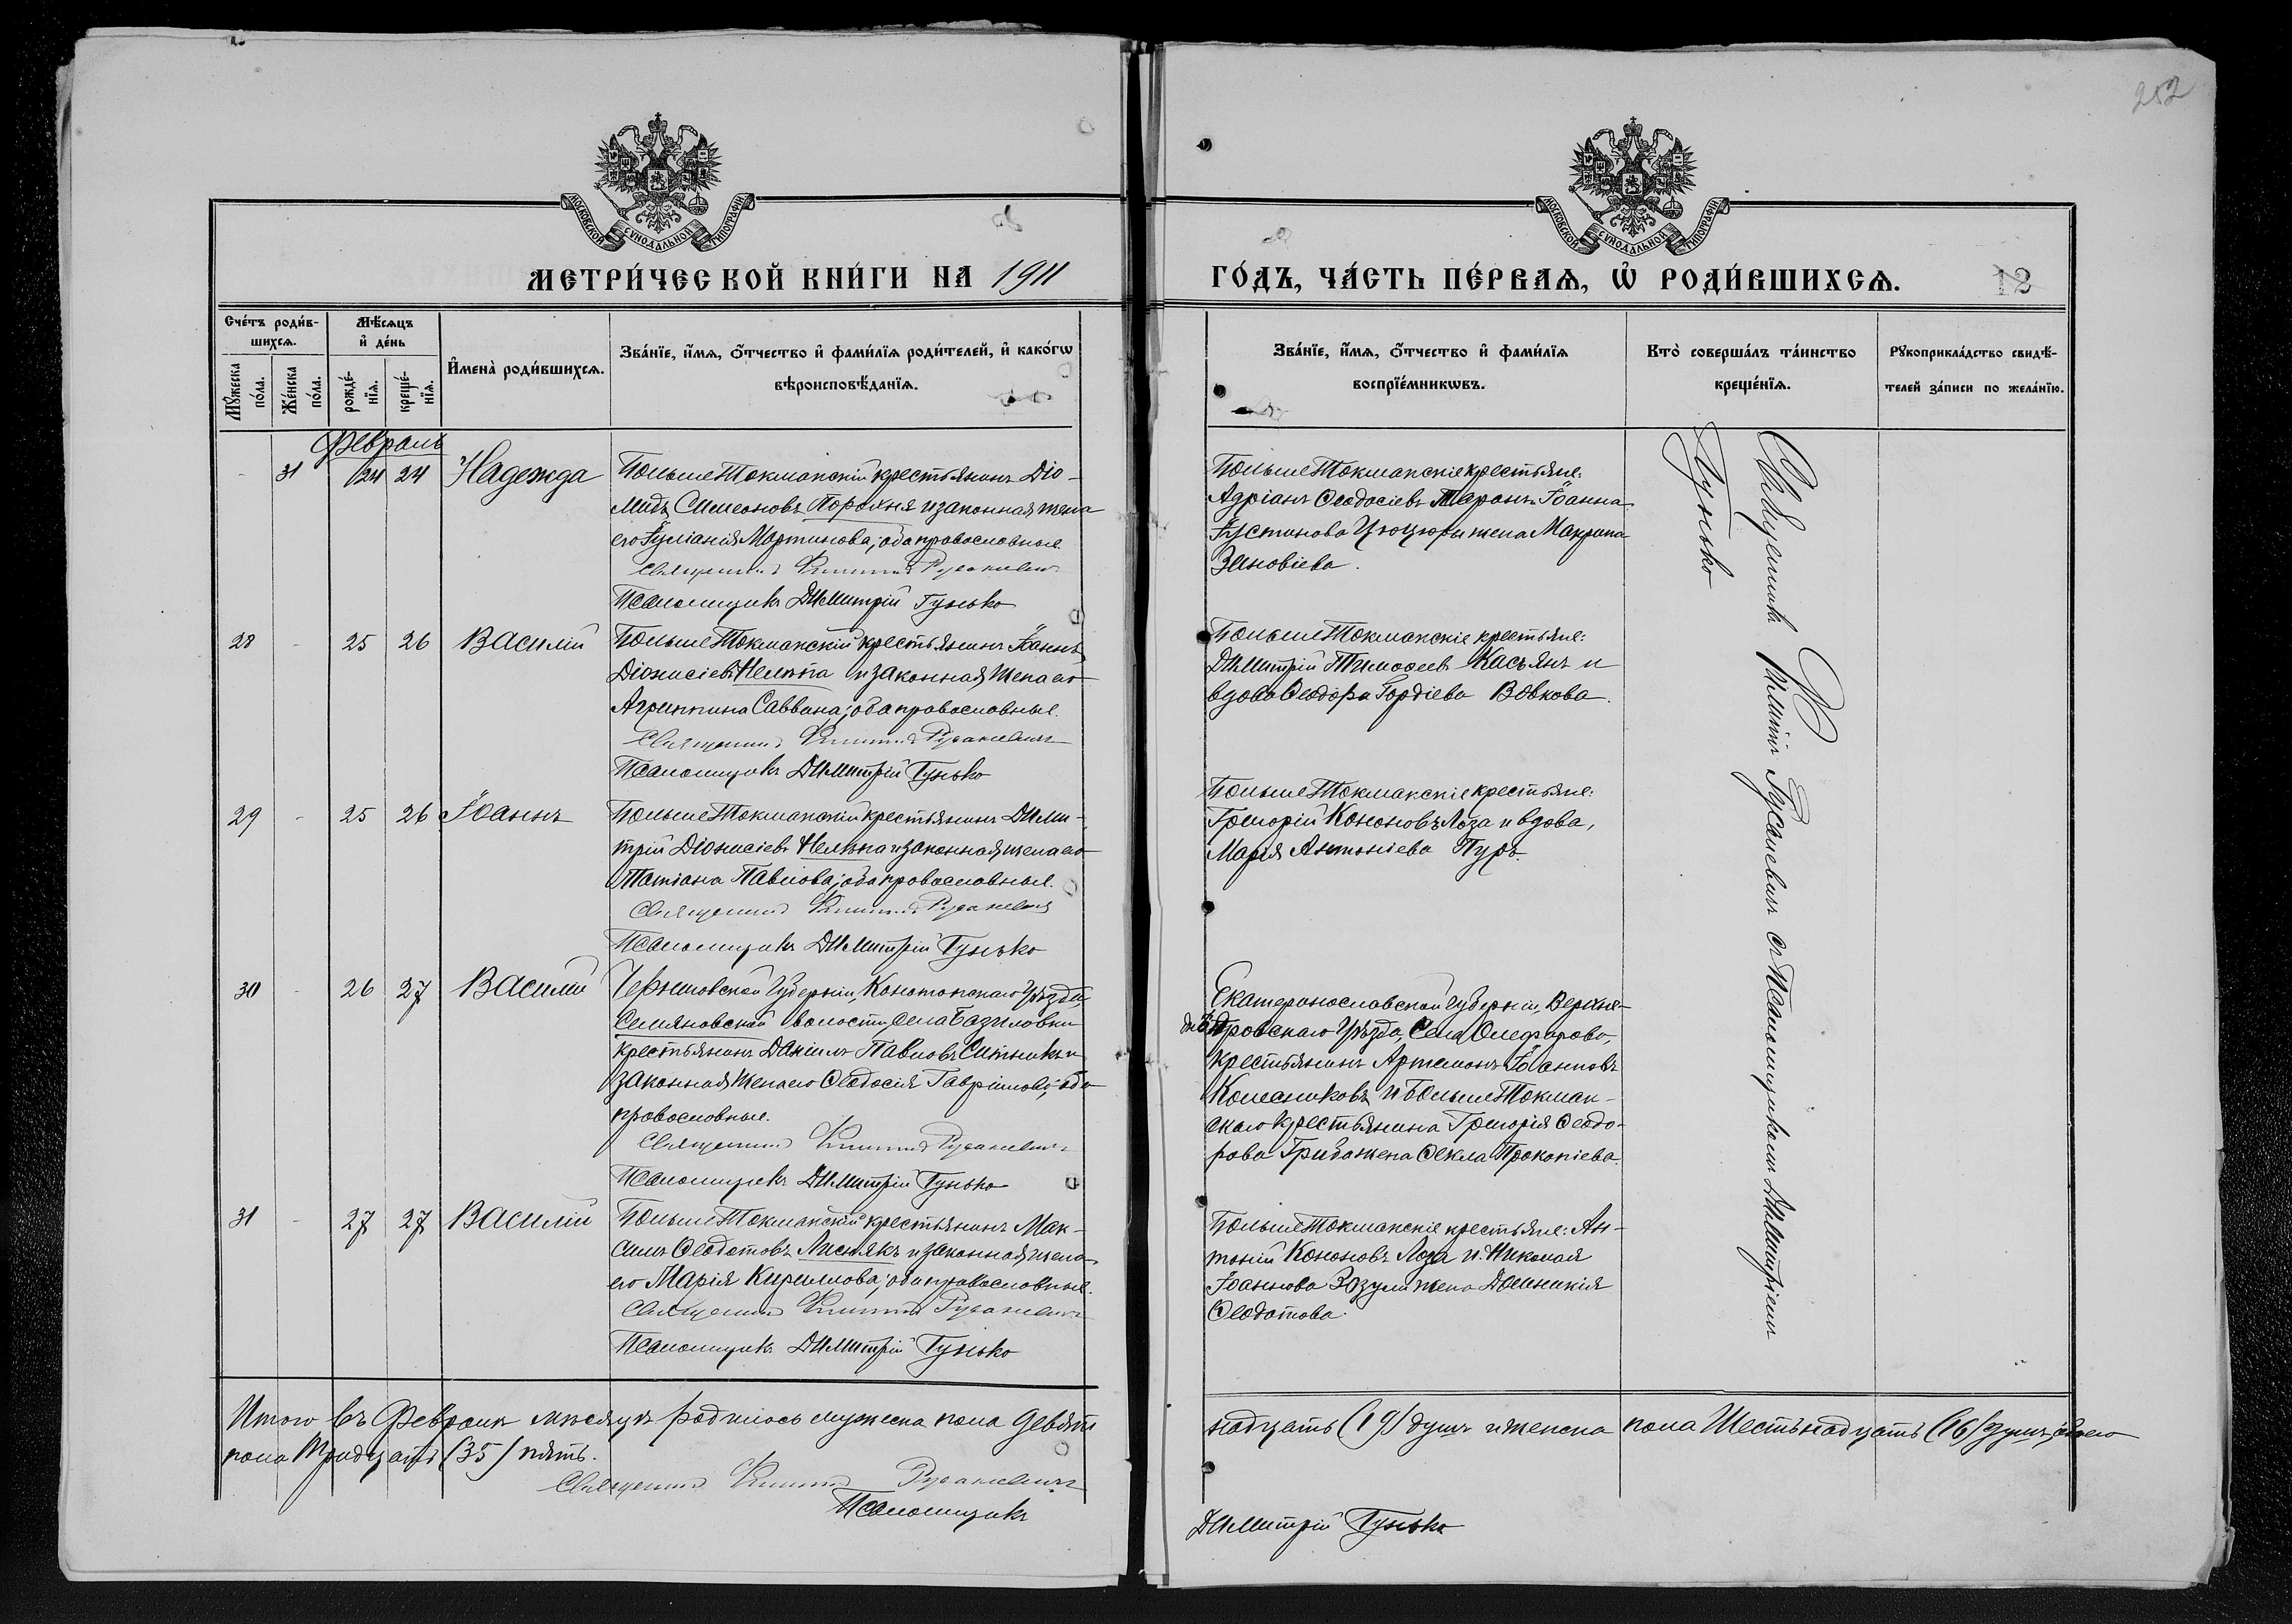 252
МОСКОВСКОЙ СѴНОДАЛЬНОЙ ТИПОГРАФІИ
МОСКОВСКОЙ СѴНОДАЛЬНОЙ ТИПОГРАФІИ
МЕТРИ́ЧЕСКОЙ КНИ́ГИ НА 1911
ГО́ДЪ, ЧА́СТЬ ПЕ́РВАѦ, Ѡ҆ РОДИ́ВШИХСѦ.
12
Сче́тъ роди́в-
шихсѧ.
Мѣ́сѧцъ
и҆ де́нь
И҆мена̀ роди́вшихсѧ.
Зва́нїе, и҆́мѧ, ѻ҆́тчество и҆ фами́лїѧ роди́телей, и҆ како́гѡ
вѣроисповѣ́данїѧ.
Мꙋ́жеска по́ла.
Же́нска по́ла.
рожде́-
нїѧ.
креще́-
нїѧ.
Зва́нїе, и҆́мѧ, ѻ҆́тчество и҆ фами́лїѧ
воспрїе́мникѡвъ.
Кто̀ соверша́лъ та́инство
креще́нїѧ.
Рꙋкоприкла́дство свидѣ́-
телей за́писи по жела́нїю.
Февраль
31 24 24 Надежда
БольшеТокмакскій крестьянинъ Діо-
мидъ Симеоновъ Порохня и законная жена
его Іуліанія Мартинова; оба православные.
Священникъ Филиппъ Русаневичъ
Псаломщикъ Димитрій Гунько
БольшеТокмакскіе крестьяне:
Адріанъ Ѳеодосіевъ Таранъ Іоанна
Іустинова Цюцюры жена Макрина
Зиновіева.
28 - 25 26 Василій
БольшеТокмакскій крестьянинъ Іоаннъ
Діонисіевъ Нелѣпа и законная жена его
Агриппина Саввина; оба православные.
Священникъ Филиппъ Русаневичъ
Псаломщикъ Димитрій Гунько
БольшеТокмакскіе крестьяне:
Димитрій Тимоѳеевъ Касьянъ и
вдова Ѳеодора Гордіева Вовкова.
29 - 25 26 Іоаннъ
БольшеТокмакскій крестьянинъ Дими-
трій Діонисіевъ Нелѣпа и законная жена его
Татіана Павлова; оба православные.
Священникъ Филиппъ Русаневичъ
Псаломщикъ Димитрій Гунько
БольшеТокмакскіе крестьяне:
Григорій Кононовъ Лоза и вдова,
Марія Антоніева Пуръ.
30 - 26 27 Василій
Черниговской Губерніи, Конотопскаго Уѣзда,
Семяновской волости села Базиловки
крестьянинъ Даніилъ Павловъ Ситникъ и
законная жена его Ѳеодосія Гавріилова; оба
православные.
Священникъ Филиппъ Русаневичъ
Псаломщикъ Димитрій Гунько
Екатеринославской Губерніи, Верхне-
днѣпровскаго Уѣзда, Села Олефирово,
крестьянинъ Артемонъ Іоанновъ
Колесниковъ и БольшеТокмак-
скаго крестьянина Григорія Ѳеодо-
рова Гриба жена Ѳекла Прокопіева.
31 - 27 27 Василій
БольшеТокмакскій крестьянинъ Мак-
симъ Ѳеодотовъ Лиснякъ и законная жена
его Марія Кириллова; оба православные.
Священникъ Филиппъ Русаневичъ
Псаломщикъ Димитрій Гунько
БольшеТокмакскіе крестьяне: Ан-
тоній Кононовъ Лоза и Николая
Іоаннова Зозули жена Домникія
Ѳеодотова.
Священникъ Филиппъ Русаневичъ съ Псаломщикомъ Димитріемъ
Гунько
Итого въ Февралѣ мѣсяцѣ родилось мужеска пола девят-
надцать (19) душъ и женска пола Шестьнадцать (16) душъ, обоего
пола Тридцать (35) пять.
Священникъ Филиппъ Русаневичъ
Псаломщикъ
Димитрій Гунько